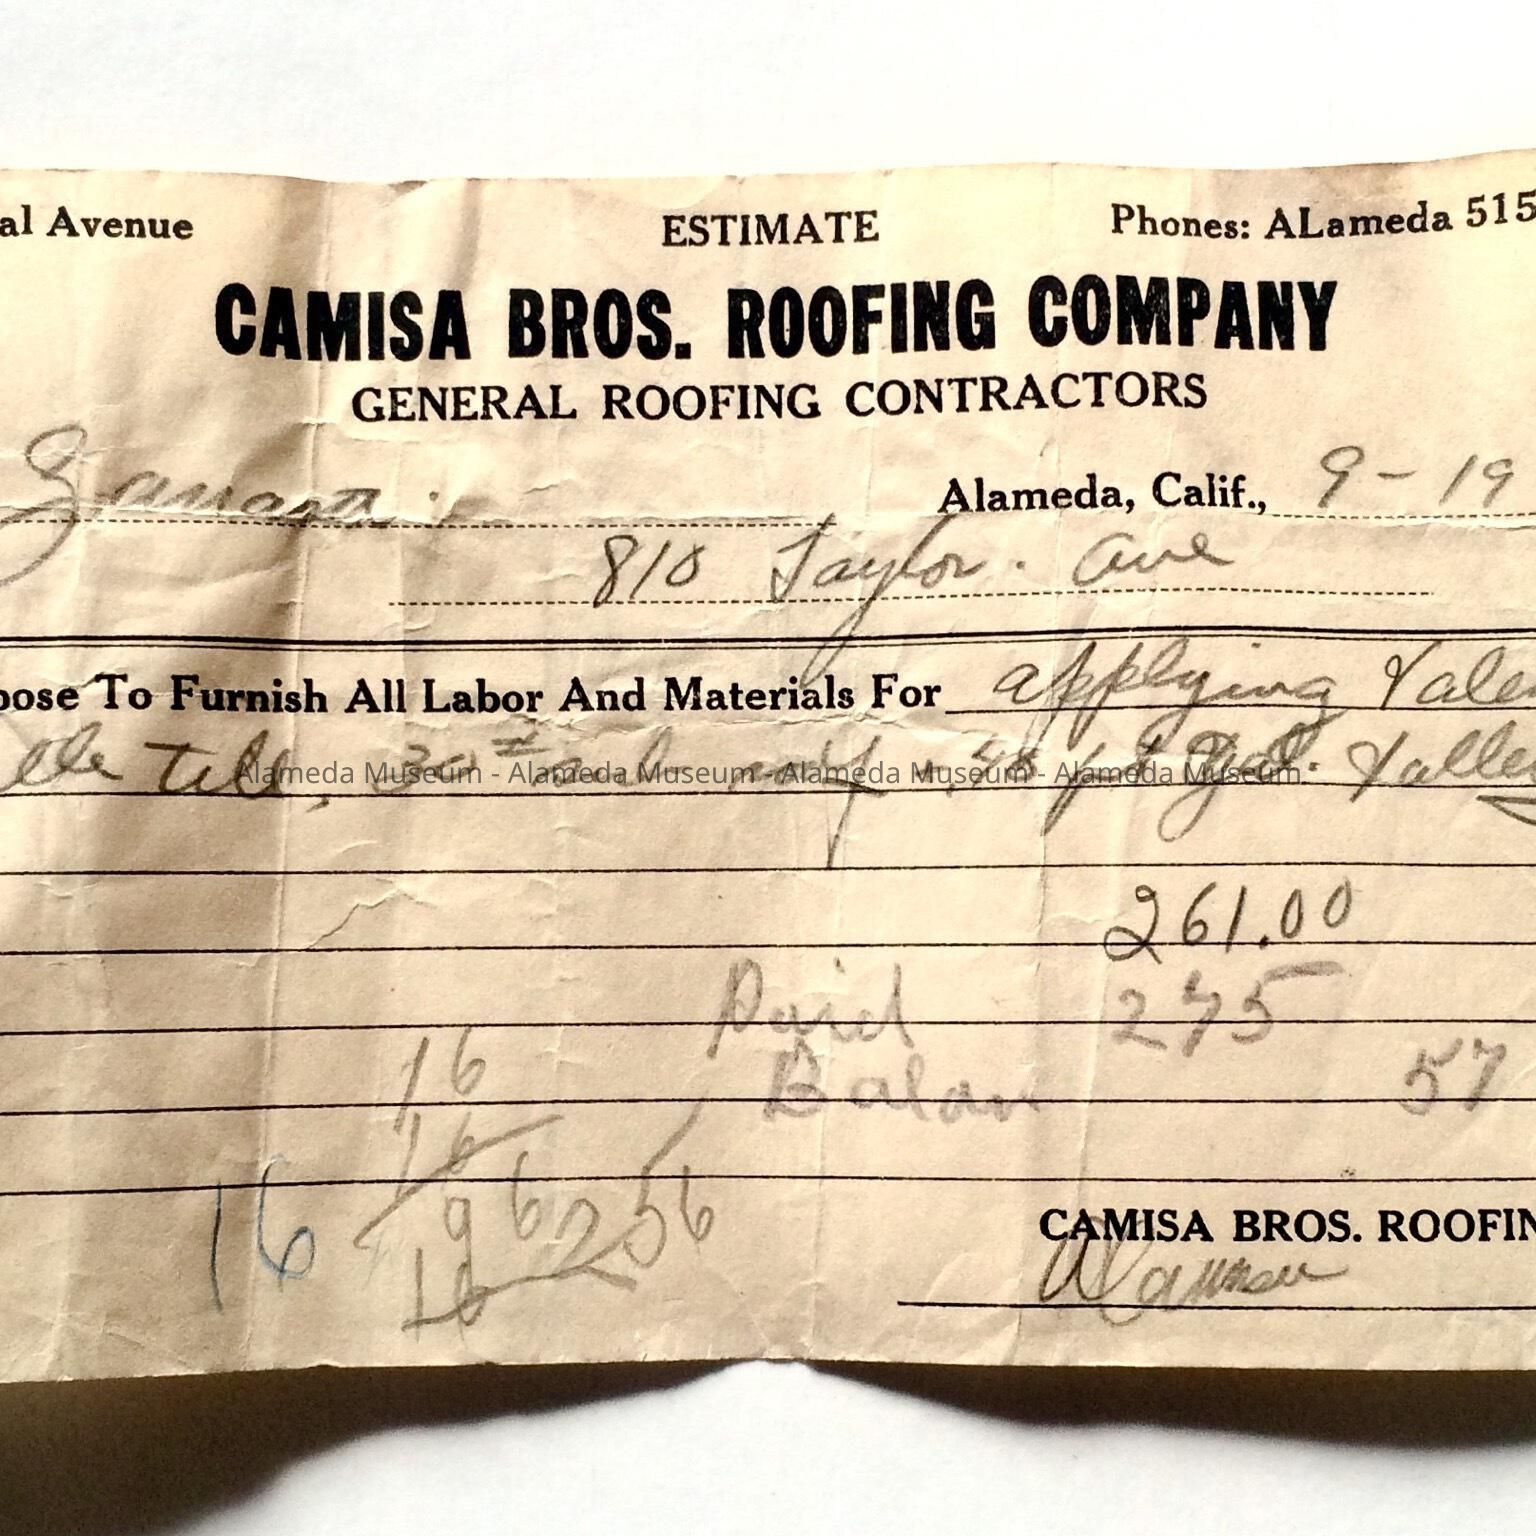 al Avenue ESTIMATE Phones: ALameda 515
CAMISA BROS. ROOFING COMPANY
GENERAL ROOFING CONTRACTORS
Alameda, Calif., 9-19
810 Taylor. Ave
pose To Furnish All Labor And Materials For applying
30# Gal.
Alameda Museum - Alameda Museum - Alameda Museum - Alameda Museum
261.00
Paid 275
Balan 57
16
16
96
16
256
16
CAMISA BROS. ROOFIN